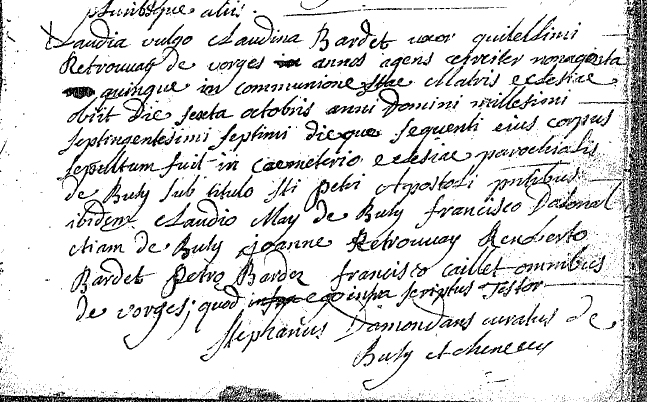 pluribusque aliis.
Claudia vulgo Claudina Bardet uxor guilellimi
Retrouvay de vorges annos agens circiter nonagenta
quinque in communione stae Matris ecclesiae
obiit Die sexta octobris anni Domini millesimi
septingentesimi septimi dieque sequenti eius corpus
sepultum fuit in caemeterio ecclesiae parochialis
de Busy sub titulo Sti petri Apostoli pntibus
ibidem Claudio May de Busy francisco
etiam de Busy joanne Retrouvay Renberto
Bardet Petro Bardet francisco caillet omnibus
de vorges; quod ego infra scriptus Testor
Stephanus Damondans curatus de
Busy et chenecey